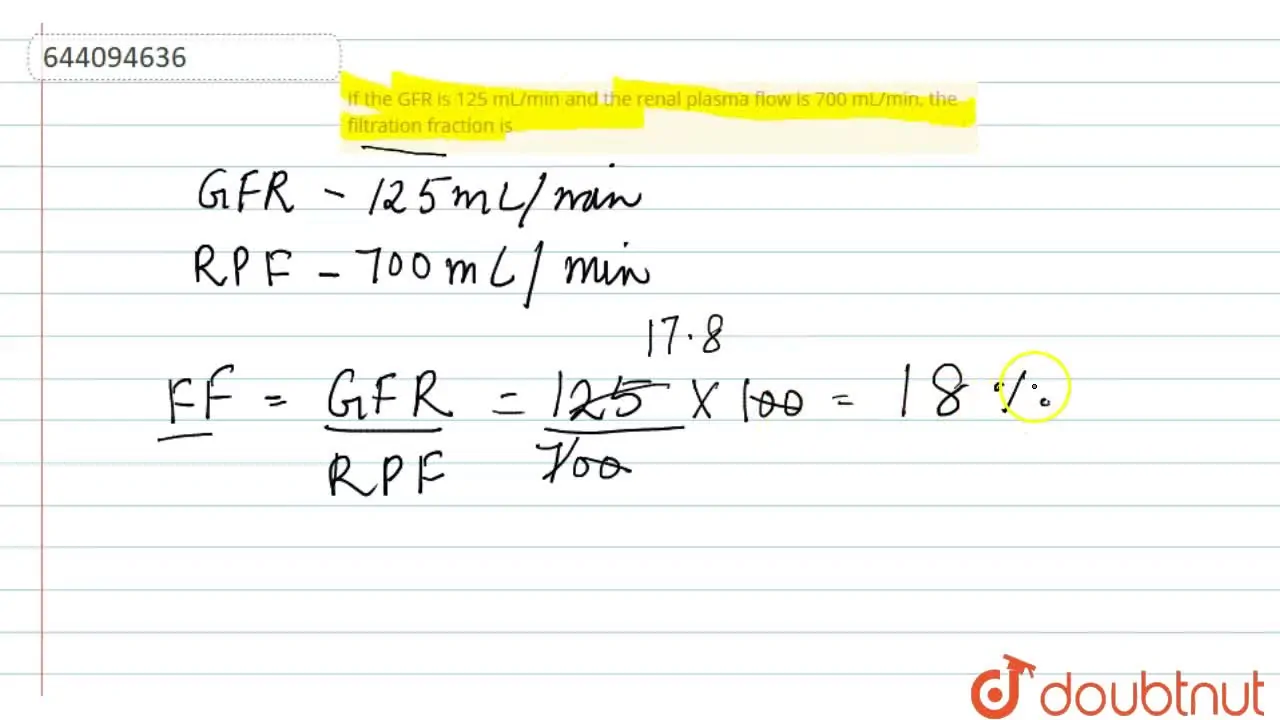 644094636
If the GFR is 125 mL/min and the renal plasma flow is 700 mL/min, the
filtration fraction is
GFR - 125 mL/min
RPF - 700 mL/min
17.8
FF = GFR/RPF = 125/700 X 100 = 18 %
doubtnut